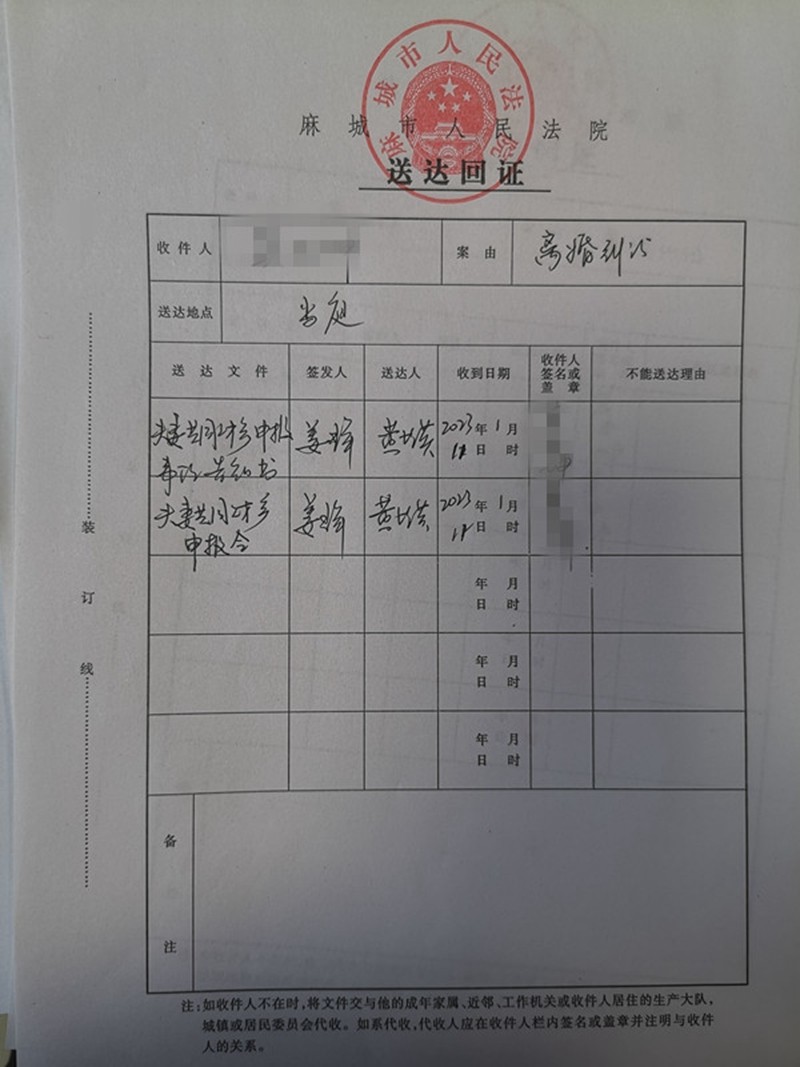 麻城市人民法院
麻城市人民法院
送达回证
收件人
案由 离婚纠纷
送达地点 当庭
送达文件 签发人 送达人 收到日期 收件人签名或盖章 不能送达理由
夫妻共同财产申报 姜 黄 2023年1月
事项告知书 日 时
夫妻共同财产 姜 黄 2023年1月
申报令 日 时
年 月
日 时
年 月
日 时
年 月
日 时
备
注
装
订
线
注:如收件人不在时,将文件交与他的成年家属、近邻、工作机关或收件人居住的生产大队,
城镇或居民委员会代收。如系代收,代收人应在收件人栏内签名或盖章并注明与收件
人的关系。